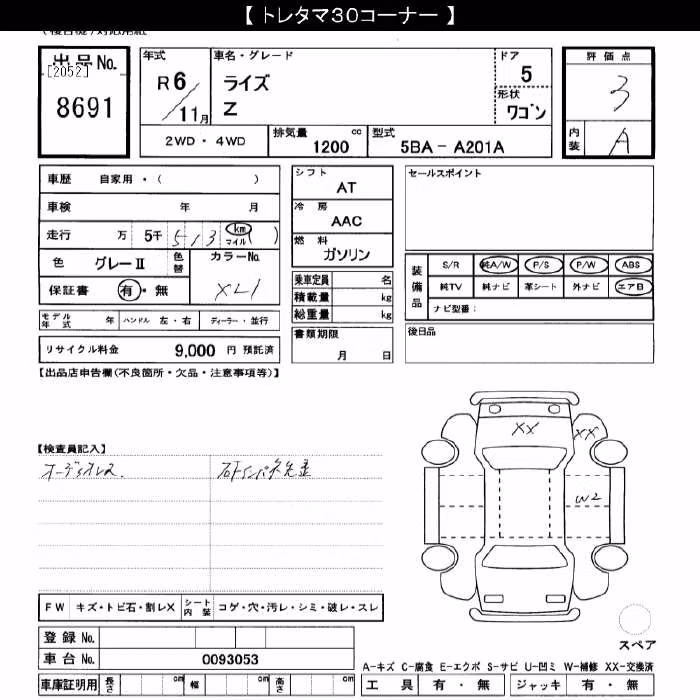 【 トレタマ30コーナー 】
出品No.
[2052]
8691
年式
R6/11月
車名・グレード
ライズ
Z
ドア
5
形状
ワゴン
評価点
3
内装
A
2WD・4WD
排気量 cc
1200
型式
5BA - A201A
車歴 自家用・( )
車検 年 月
走行 万 5千 513 km マイル ( )
色 グレーⅡ
色替
カラーNo.
XL1
保証書 有・無
シフト
AT
冷房
AAC
燃料
ガソリン
乗車定員 名
積載量 kg
総重量 kg
書類期限
月 日
セールスポイント
装備品
S/R 純A/W P/S P/W ABS
純TV 純ナビ 革シート 外ナビ エアB
ナビ型番:
後日品
モデル年式 年 ハンドル 左・右 ディーラー・並行
リサイクル料金 9,000 円 預託済
【出品店申告欄(不良箇所・欠品・注意事項等)】
【検査員記入】
オーディオレス
XX
XX
W2
スペア
FW キズ・トビ石・割レX シート内装 コゲ・穴・汚レ・シミ・破レ・スレ
登録No.
車台No. 0093053
車庫証明用 長さ cm 幅 cm 高さ cm
A-キズ C-腐食 E-エクボ S-サビ U-凹ミ W-補修 XX-交換済
工具 有・無 ジャッキ 有・無